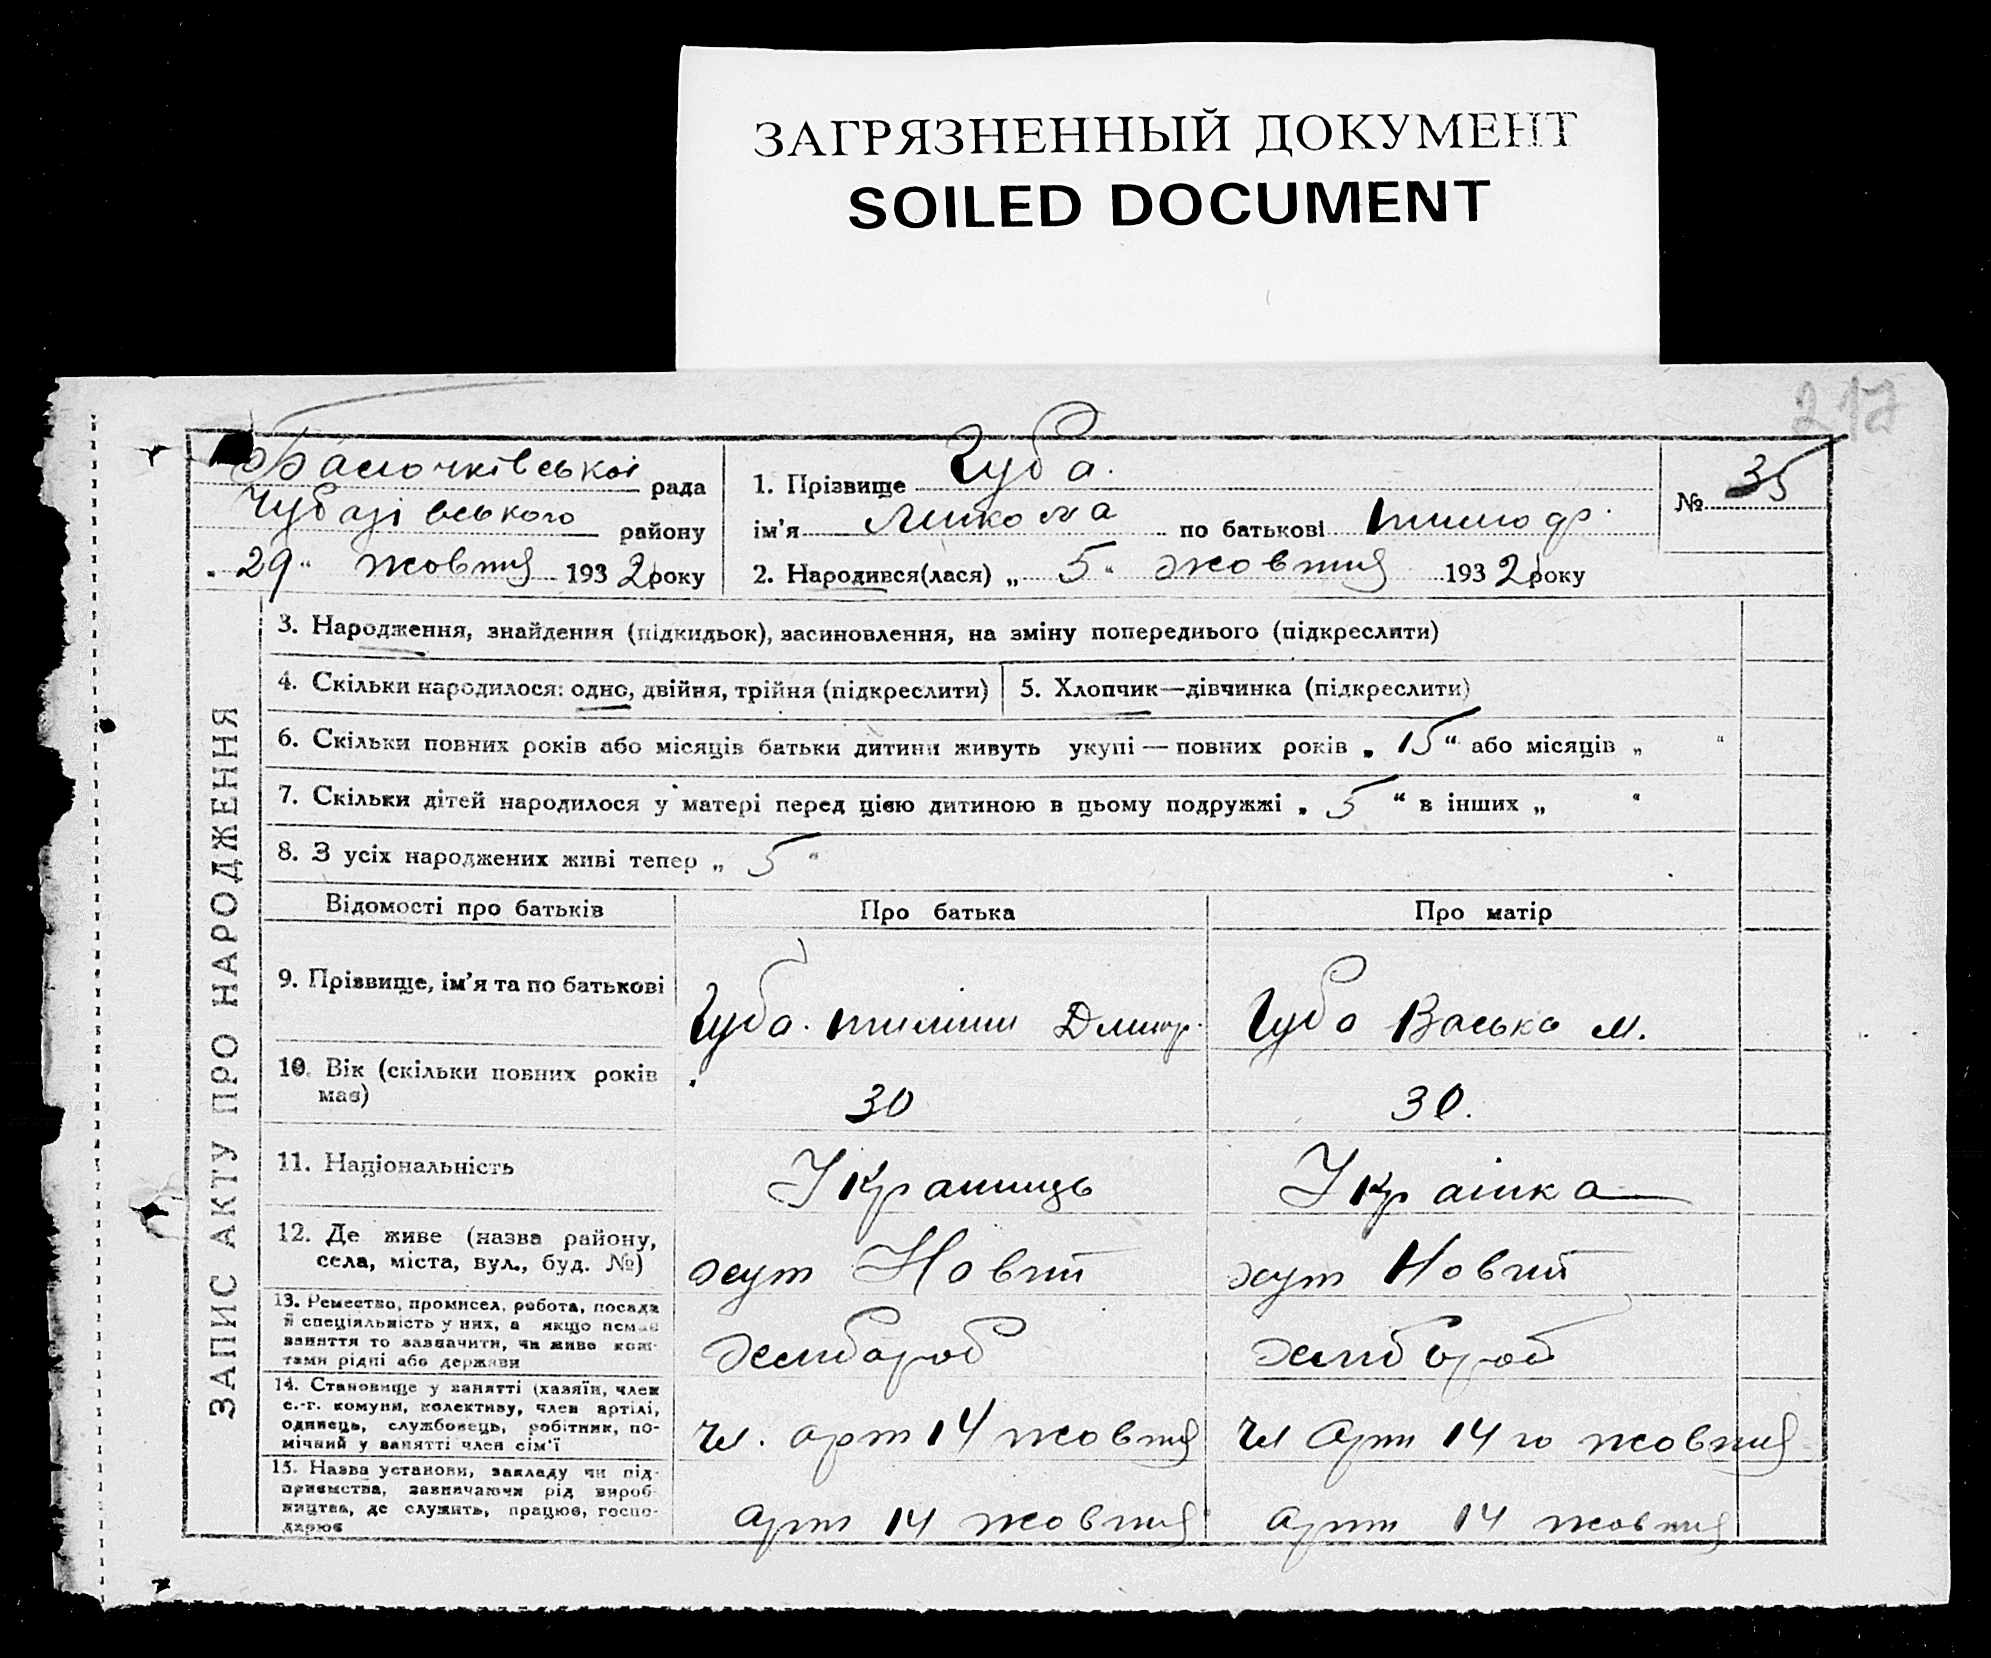 ЗАГРЯЗНЕННЫЙ ДОКУМЕНТ
SOILED DOCUMENT
217
рада
району
29 жовтня 1932 року
1. Прізвище Губа.
ім'я Микола по батькові
2. Народився(лася) „ 5 " жовтня 1932 року
№ 35
ЗАПИС АКТУ ПРО НАРОДЖЕННЯ
3. Народження, знайдення (підкидьок), засиновлення, на зміну попереднього (підкреслити)
4. Скільки народилося: одно, двійня, трійня (підкреслити)
5. Хлопчик—дівчинка (підкреслити)
6. Скільки повних років або місяців батьки дитини живуть укупі — повних років „ 15 " або місяців „ "
7. Скільки дітей народилося у матері перед цією дитиною в цьому подружжі „ 5 " в інших „ "
8. З усіх народжених живі тепер „ 5 "
Відомості про батьків
Про батька
Про матір
9. Прізвище, ім'я та по батькові
Губа. Дмитр.
Губа Васька М.
10. Вік (скільки повних років
має)
30
30.
11. Національність
Українць
Українка
12. Де живе (назва району,
села, міста, вул., буд. №)
хут Новий
хут Новий
13. Ремество, промисел, робота, посада
й спеціяльність у них, а якщо немає
заняття то зазначити, чи живе кош-
тами рідні або держави
хлібороб
хлібороб
14. Становище у занятті (хазяїн, член
с.-г. комуни, колективу, член артілі,
одинець, службовець, робітник, по-
мічний у занятті член сім'ї
чл. арт 14 жовтня
чл арт 14 го жовтня
15. Назва установи, закладу чи під-
приємства, зазначаючи рід вироб-
ництва, де служить, працює, госпо-
дарює
арт 14 жовтня
арт 14 жовтня